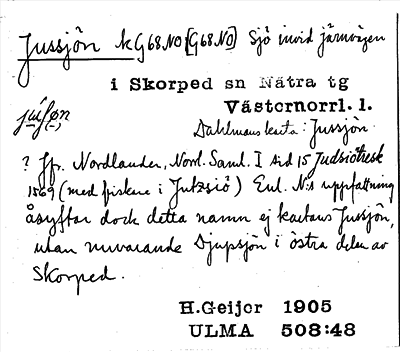 Jussjön k G68.NO [G68.NO] Sjö invid järnvägen
i Skorped sn Nätra tg
Västernorrl. l.
Dahlmans karta: Jussjön
? Jfr. Nordlander, Norrl. Saml. I sid 15 Judsiötresk
1569 (med fiskare i Jutzsiö) Enl. N:s uppfattning
åsyftar dock detta namn ej kartans Jussjön,
utan nuvarande Djupsjön i östra delen av
Skorped.
H.Geijer 1905
ULMA 508:48